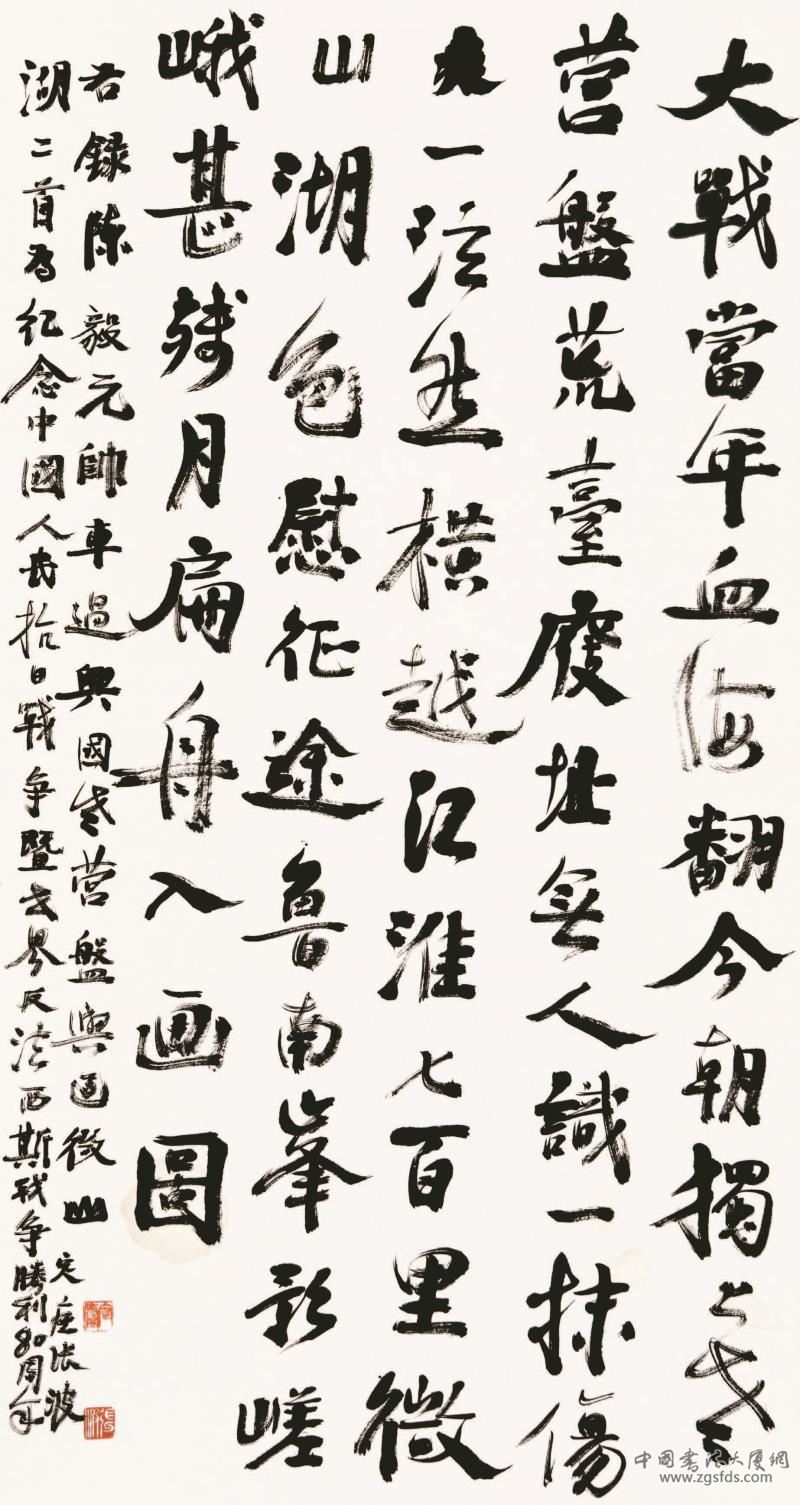 大戰當年血海翻今朝獨上老
营盤荒臺廢址無人識一抹傷
一泫然橫越江淮七百里微
山湖色慰征途魯南峯影嵯
峨甚残月扁舟入画圖
右録陈毅元帥車過興國老营盤與過微山
湖二首為纪念中國人民抗日戰争暨世界反法西斯战争勝利80周年
张波
中國書法大厦網
www.zgsfds.com